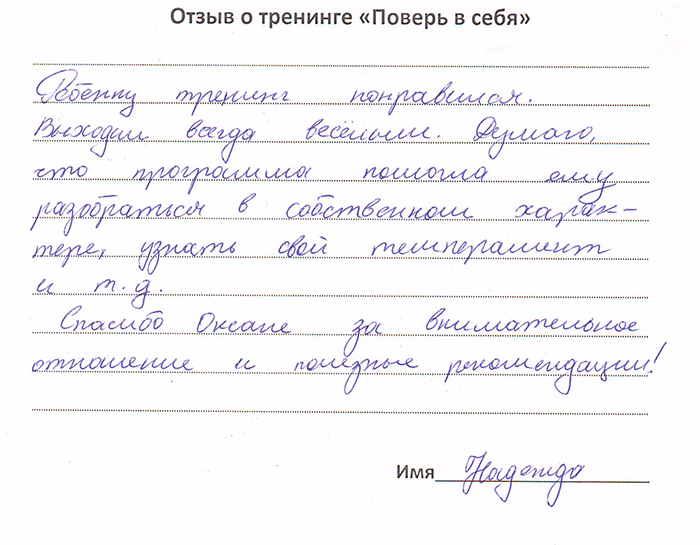 Отзыв о тренинге «Поверь в себя»
Ребёнку тренинг понравился.
Выходил всегда весёлыми. Думаю,
что программа помогла ему
разобраться в собственном харак-
тере, узнать свой темперамент
и т.д.
Спасибо Оксане за внимательное
отношение и полезные рекомендации!
Имя Надежда